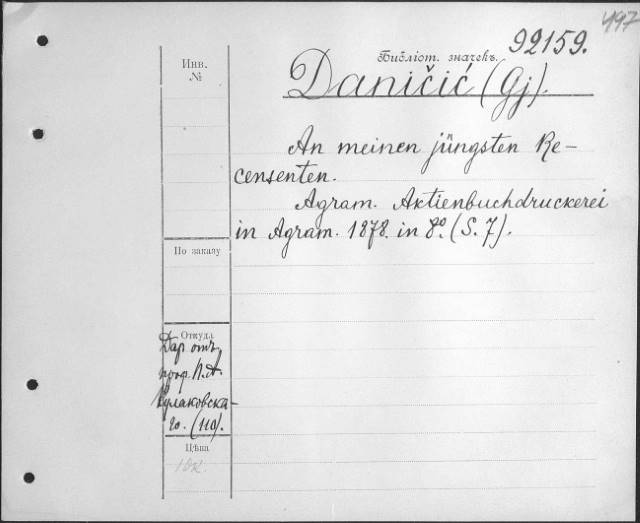 497
Библіот. значекъ. 92159.
Инв.
№
Daničić (Gj).
An meinen jüngsten Re-
censenten.
Agram. Aktienbuchdruckerei
in Agram. 1878. in 8º. (S. 7).
По заказу
Откуда
Дар отъ
проф. П. А.
Кулаковска-
го. (110).
Цѣна
10к.